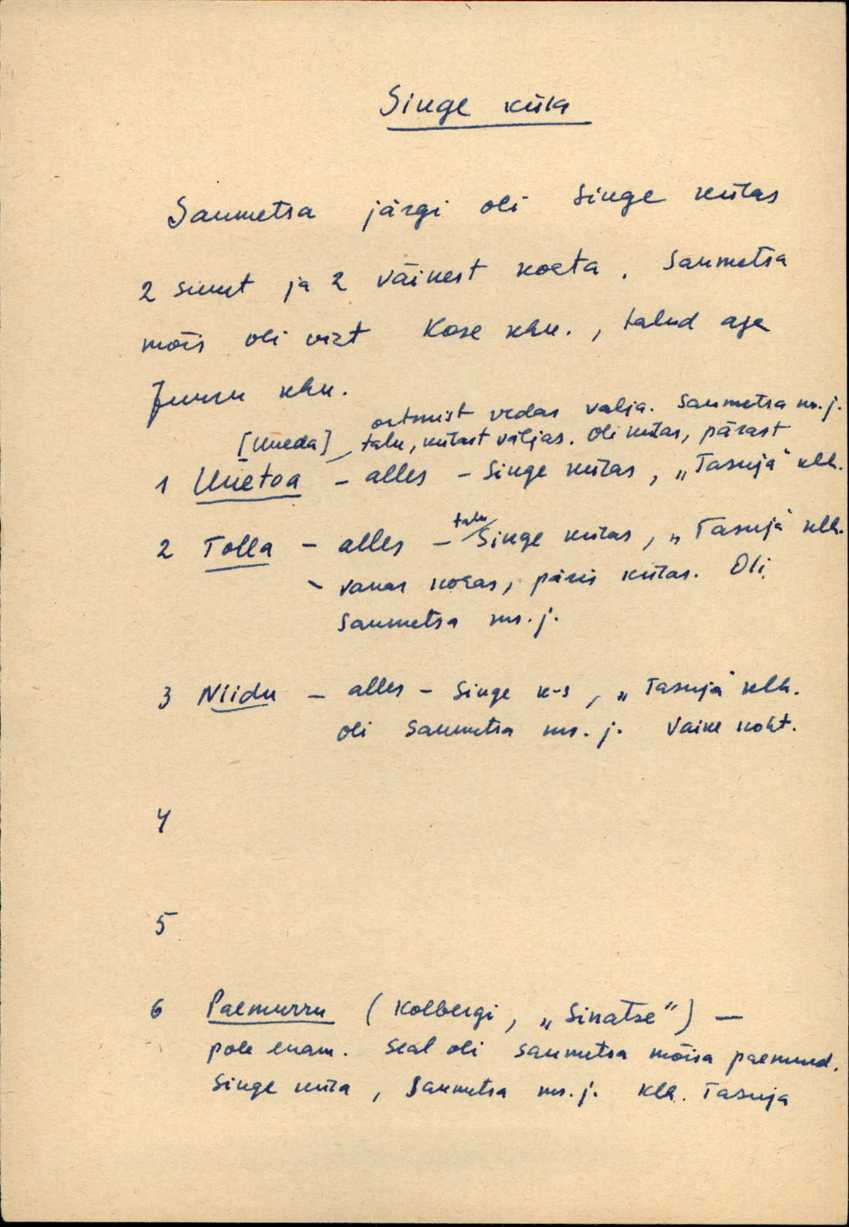 Singe küla
Saumetsa järgi oli Singe külas
2 suurt ja 2 väikest kohta. Saumetsa
mõis oli vist Kose khk., talud aga
Juuru khk.
ostmist vedas välja. Saumetsa ms. j.
[Uueda] talu, külast väljas. Oli külas, pärast
1 Uuetoa - alles - Singe külas, „Tasuja" klh.
2 Tolla - alles - talu Singe külas, „Tasuja" klh.
- vanas kohas, päris külas. Oli
Saumetsa ms. j.
3 Niidu - alles - Singe k-s, „Tasuja" klh.
oli Saumetsa ms. j. Väike koht.
4
5
6 Paemurru (Kolbergi, „Sinatse") -
pole enam. Seal oli Saumetsa mõisa paemurd.
Singe küla, Saumetsa ms. j. klh. Tasuja